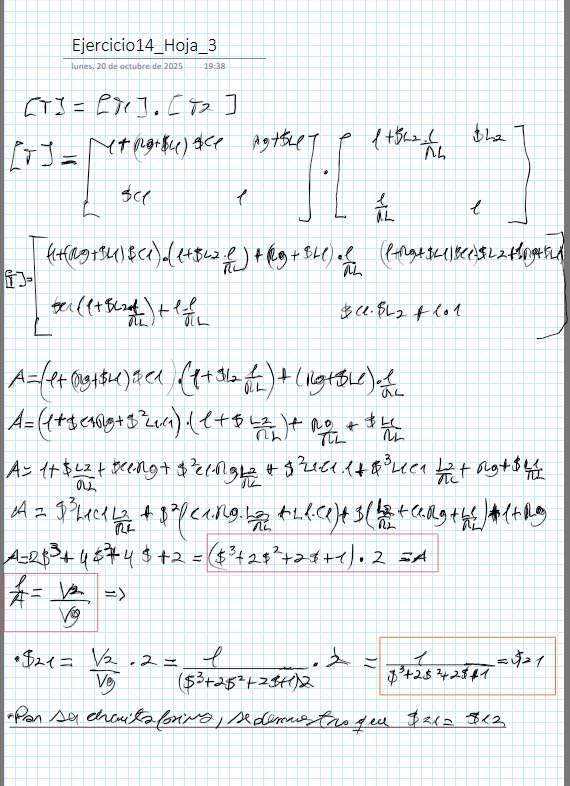 Ejercicio14_Hoja_3
lunes, 20 de octubre de 2025 19:38
[T] = [T1] . [T2]
[T] = [ 1+(Rg+$L1)$C1 Rg+$L1 ; $C1 1 ] . [ 1+$L2·1/RL $L2 ; 1/RL 1 ]
[T]= [ (1+(Rg+$L1)$C1).(1+$L2·1/RL)+(Rg+$L1)·1/RL (1+(Rg+$L1)$C1)$L2+1(Rg+$L1) ; $C1(1+$L2·1/RL)+1·1/RL $C1·$L2+1·1 ]
A=(1+(Rg+$L1)$C1).(1+$L2 1/RL)+(Rg+$L1)·1/RL
A=(1+$C1·Rg+$²L1·C1).(1+$ L2/RL)+ Rg/RL + $ L1/RL
A=1+$L2/RL+$C1·Rg+$²C1·Rg L2/RL + $²L1·C1·1+$³L1C1 L2/RL + Rg+$L1/RL
A = $³L1C1 L2/RL + $²(C1·Rg·L2/RL+L1·C1)+$(L2/RL+C1·Rg+L1/RL)+1+Rg
A=2$³+4$²+4$+2=($³+2$²+2$+1)·2 =A
1/A = V2/Vg =>
·$21= V2/Vg ·2 = 1/(($³+2$²+2$+1)2) · 2 = 1/($³+2$²+2$+1) =$21
·Por ser circuito pasivo, se demuestra que $21= $12